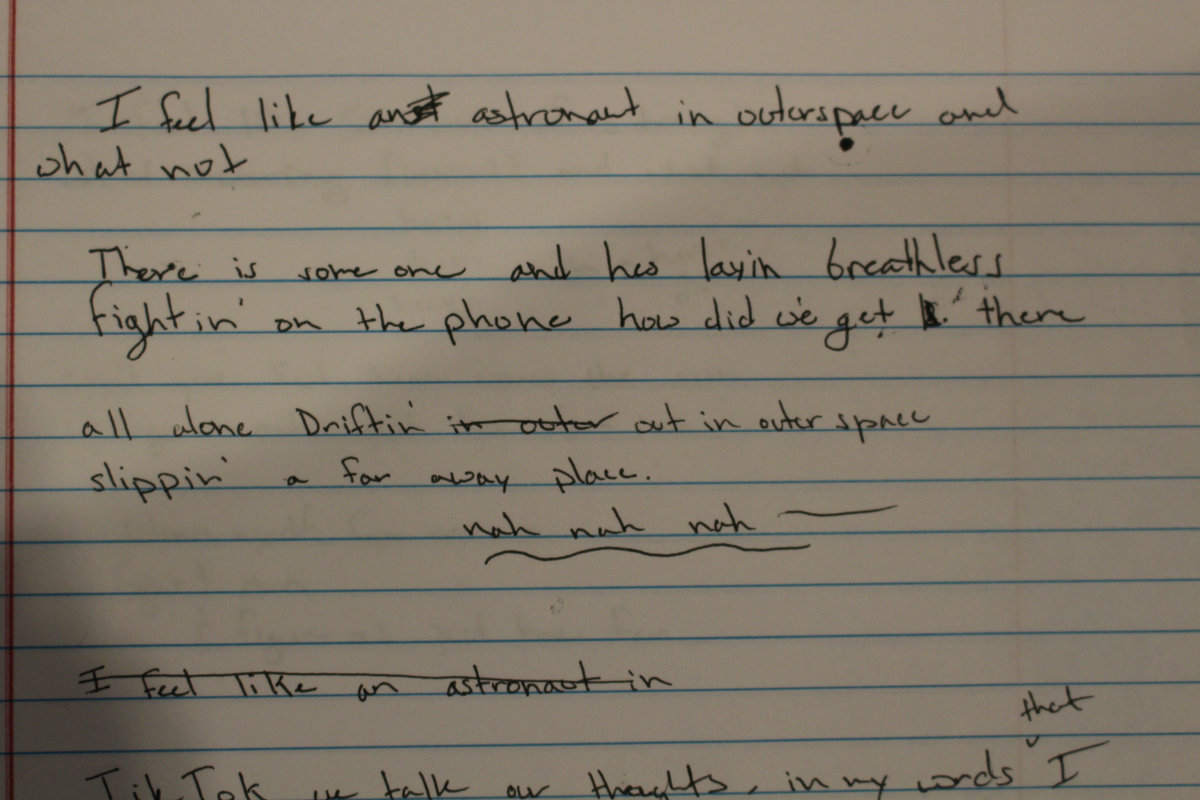 I feel like an astronaut in outerspace and
what not
There is some one and hes layin breathless
fightin' on the phone how did we get there
all alone Driftin' in outer out in outer space
slippin' a far away place.
nah nah nah
I feel like an astronaut in
that
TikTok we talk our thoughts, in my words I